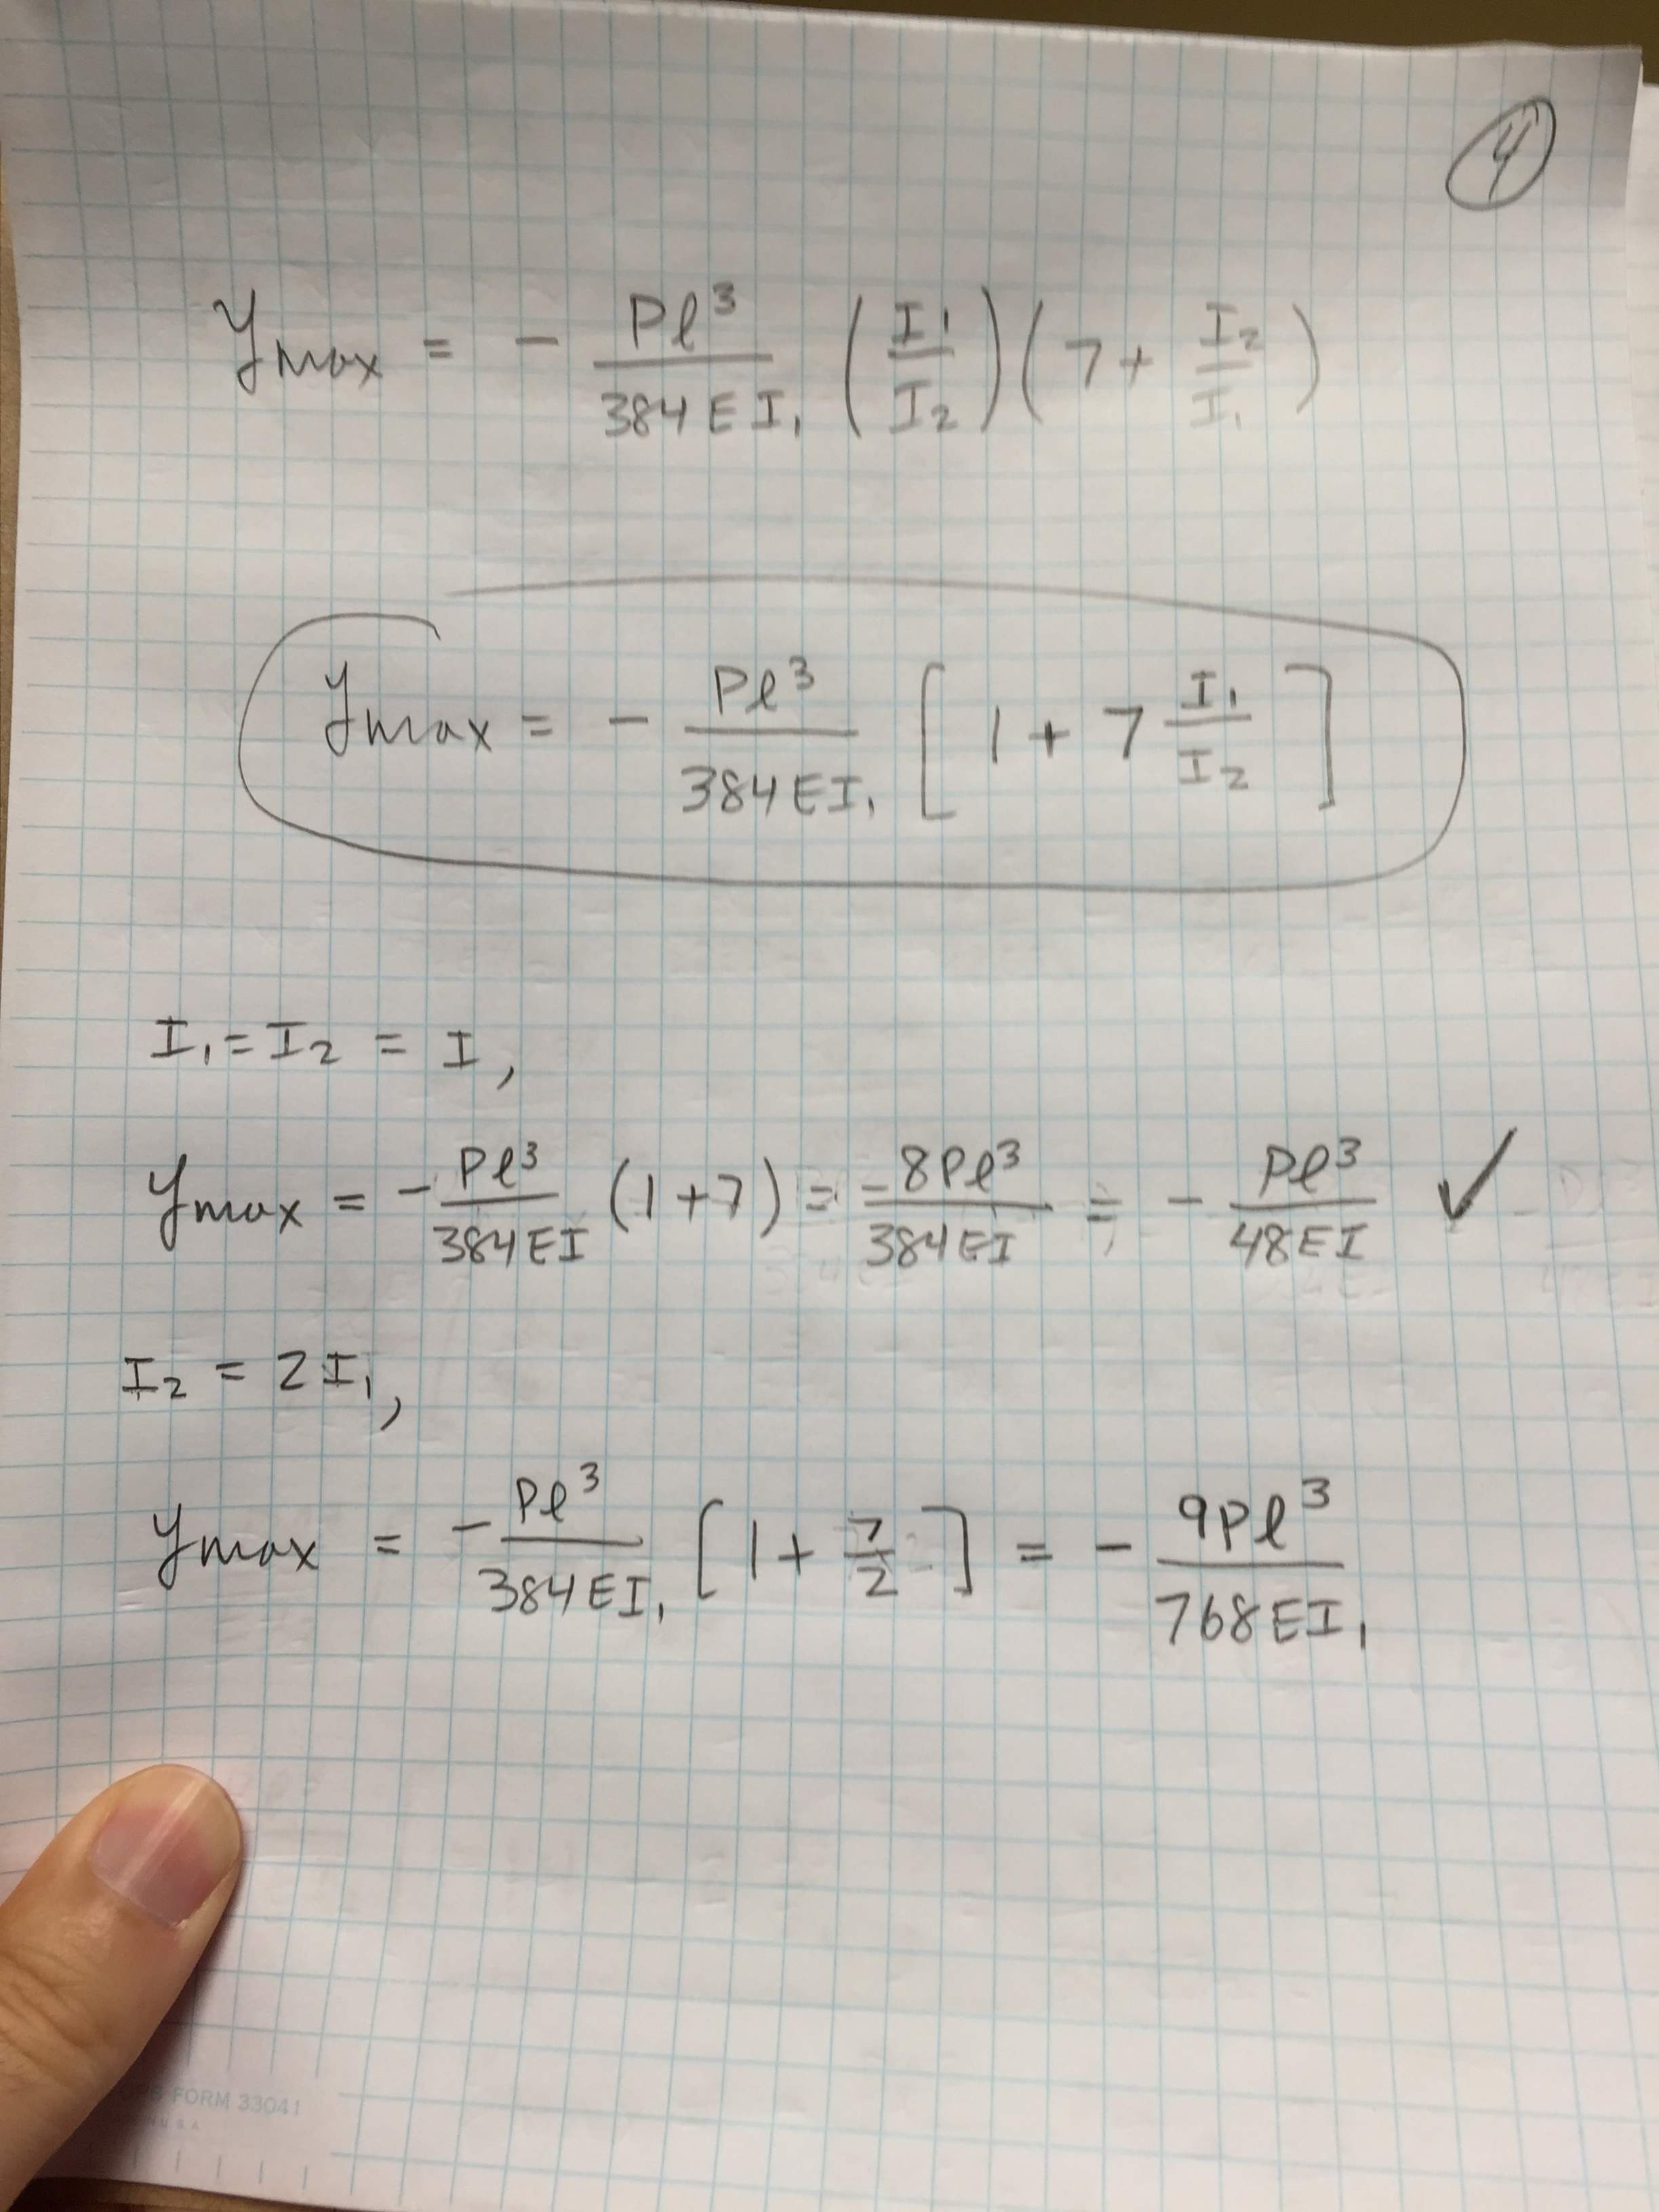 4
y_max = - Pl³/384EI₁ (I₁/I₂)(7 + I₂/I₁)
y_max = - Pl³/384EI₁ [1 + 7 I₁/I₂]
I₁ = I₂ = I,
y_max = - Pl³/384EI (1+7) = -8Pl³/384EI = - Pl³/48EI ✓
I₂ = 2I₁,
y_max = - Pl³/384EI₁ [1 + 7/2] = - 9Pl³/768EI₁
FORM 33041